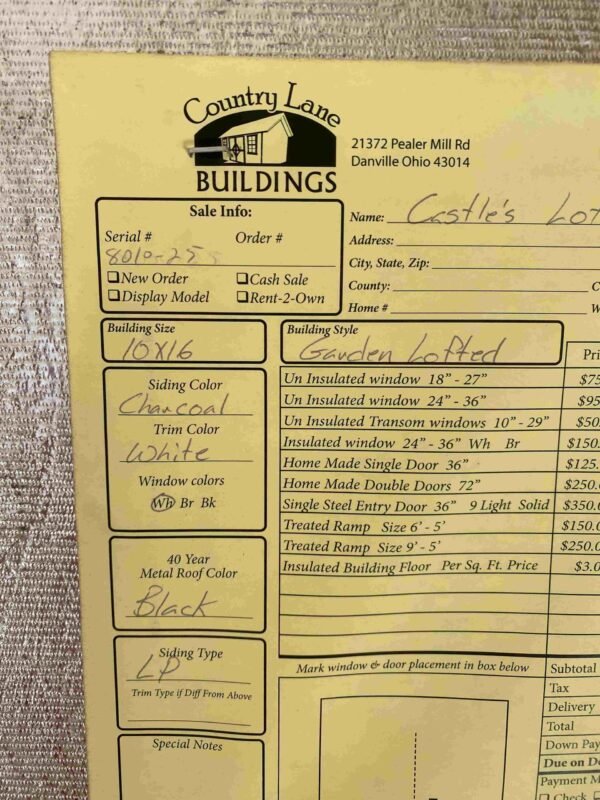 Country Lane
BUILDINGS
21372 Pealer Mill Rd
Danville Ohio 43014
Sale Info:
Serial # Order #
8010-25
❑New Order ❑Cash Sale
❑Display Model ❑Rent-2-Own
Name: Castle's Lot
Address:
City, State, Zip:
County: C
Home # W
Building Size
10x16
Building Style
Garden Lofted
Pri
Siding Color
Charcoal
Trim Color
White
Window colors
Wh Br Bk
40 Year
Metal Roof Color
Black
Siding Type
LP
Trim Type if Diff From Above
Special Notes
Un Insulated window 18" - 27" $75
Un Insulated window 24" - 36" $95
Un Insulated Transom windows 10" - 29" $50
Insulated window 24" - 36" Wh Br $150.
Home Made Single Door 36" $125.
Home Made Double Doors 72" $250.
Single Steel Entry Door 36" 9 Light Solid $350.0
Treated Ramp Size 6' - 5' $150.0
Treated Ramp Size 9' - 5' $250.0
Insulated Building Floor Per Sq. Ft. Price $3.0
Mark window & door placement in box below
Subtotal
Tax
Delivery
Total
Down Pay
Due on De
Payment M
❑ Check